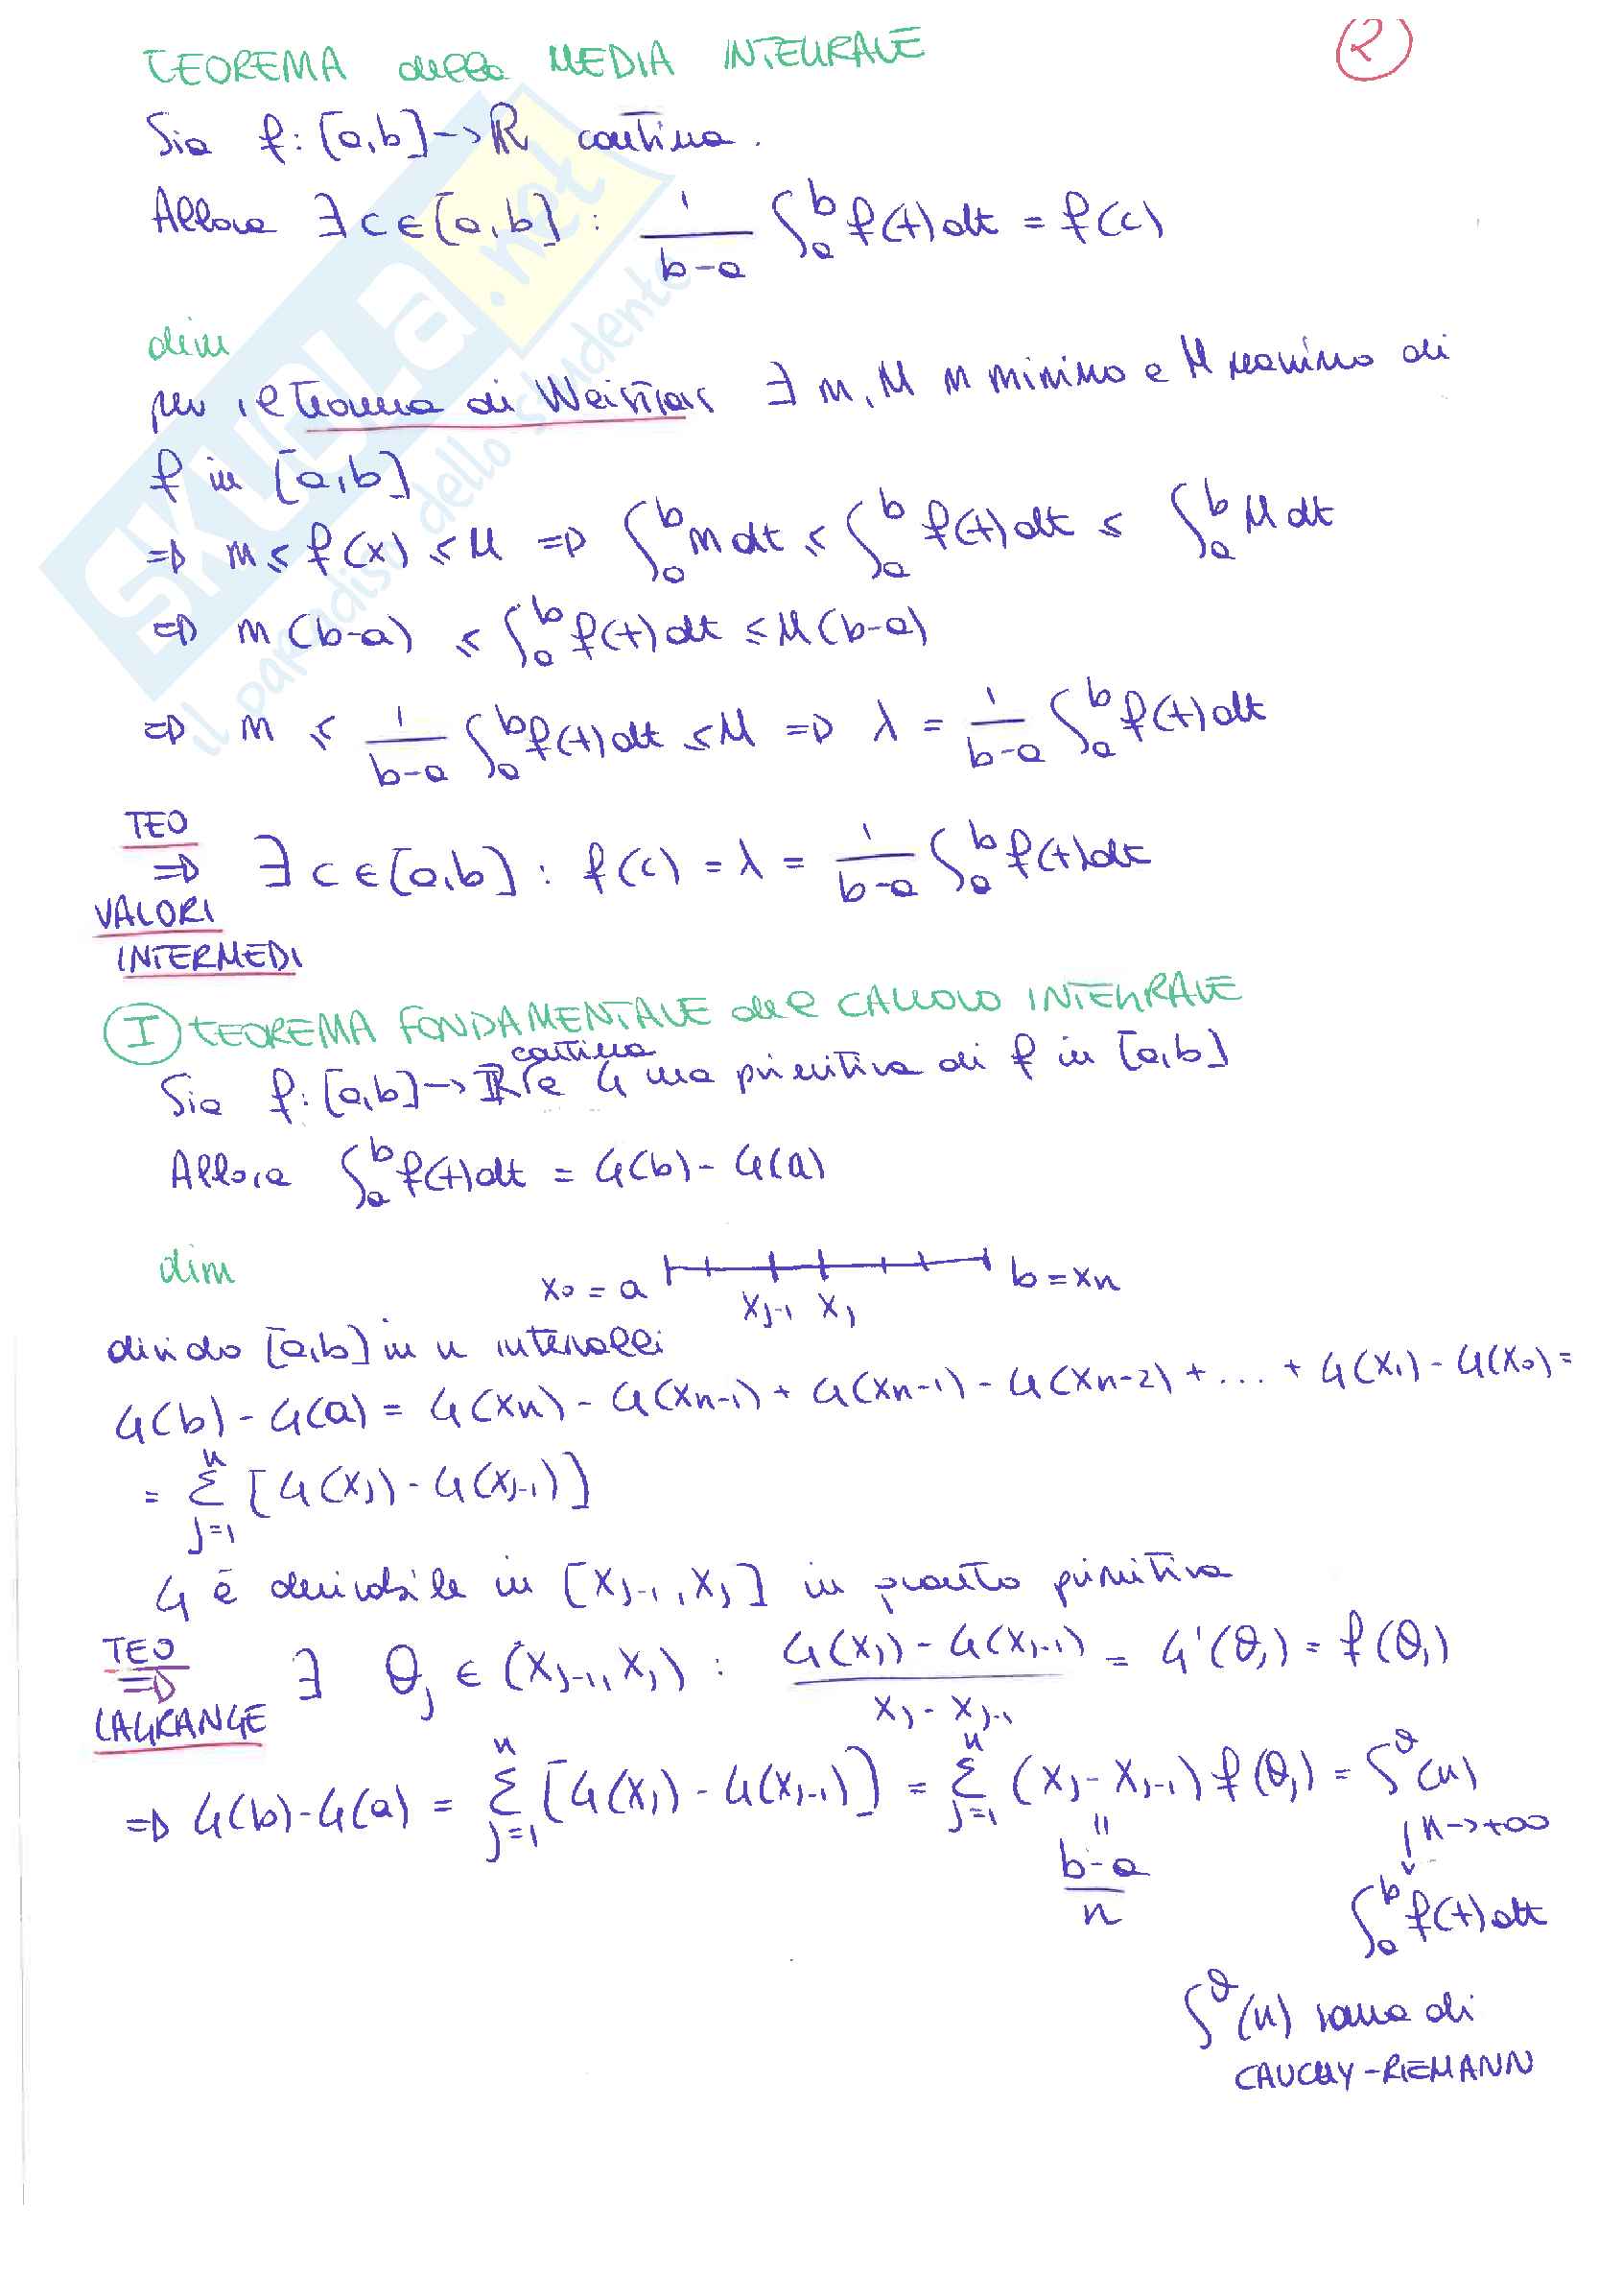 TEOREMA della MEDIA INTEGRALE
2
Sia f: [a,b] → R continua.
Allora ∃ c ∈ [a,b] : 1/(b-a) ∫_a^b f(t)dt = f(c)
dim
per il teorema di Weistras ∃ m, M m minimo e M massimo di
f in [a,b]
⇒ m ≤ f(x) ≤ M ⇒ ∫_a^b m dt ≤ ∫_a^b f(t)dt ≤ ∫_a^b M dt
⇒ m(b-a) ≤ ∫_a^b f(t)dt ≤ M(b-a)
⇒ m ≤ 1/(b-a) ∫_a^b f(t)dt ≤ M ⇒ λ = 1/(b-a) ∫_a^b f(t)dt
TEO
⇒ ∃ c ∈ [a,b] : f(c) = λ = 1/(b-a) ∫_a^b f(t)dt
VALORI
INTERMEDI
I TEOREMA FONDAMENTALE del CALCOLO INTEGRALE
continua
Sia f: [a,b] → R e G una primitiva di f in [a,b]
Allora ∫_a^b f(t)dt = G(b) - G(a)
dim
x_0 = a b = x_n
x_{j-1} x_j
divido [a,b] in n intervalli
G(b) - G(a) = G(x_n) - G(x_{n-1}) + G(x_{n-1}) - G(x_{n-2}) + ... + G(x_1) - G(x_0) =
= Σ_{j=1}^n [G(x_j) - G(x_{j-1})]
G è derivabile in [x_{j-1}, x_j] in quanto primitiva
TEO
⇒ ∃ θ_j ∈ (x_{j-1}, x_j) : (G(x_j) - G(x_{j-1}))/(x_j - x_{j-1}) = G'(θ_j) = f(θ_j)
LAGRANGE
⇒ G(b) - G(a) = Σ_{j=1}^n [G(x_j) - G(x_{j-1})] = Σ_{j=1}^n (x_j - x_{j-1}) f(θ_j) = S^θ(n)
|| ↓ n → +∞
(b-a)/n
∫_a^b f(t)dt
S^θ(n) somma di
CAUCHY-RIEMANN
SKUOLA.net
il paradiso dello studente